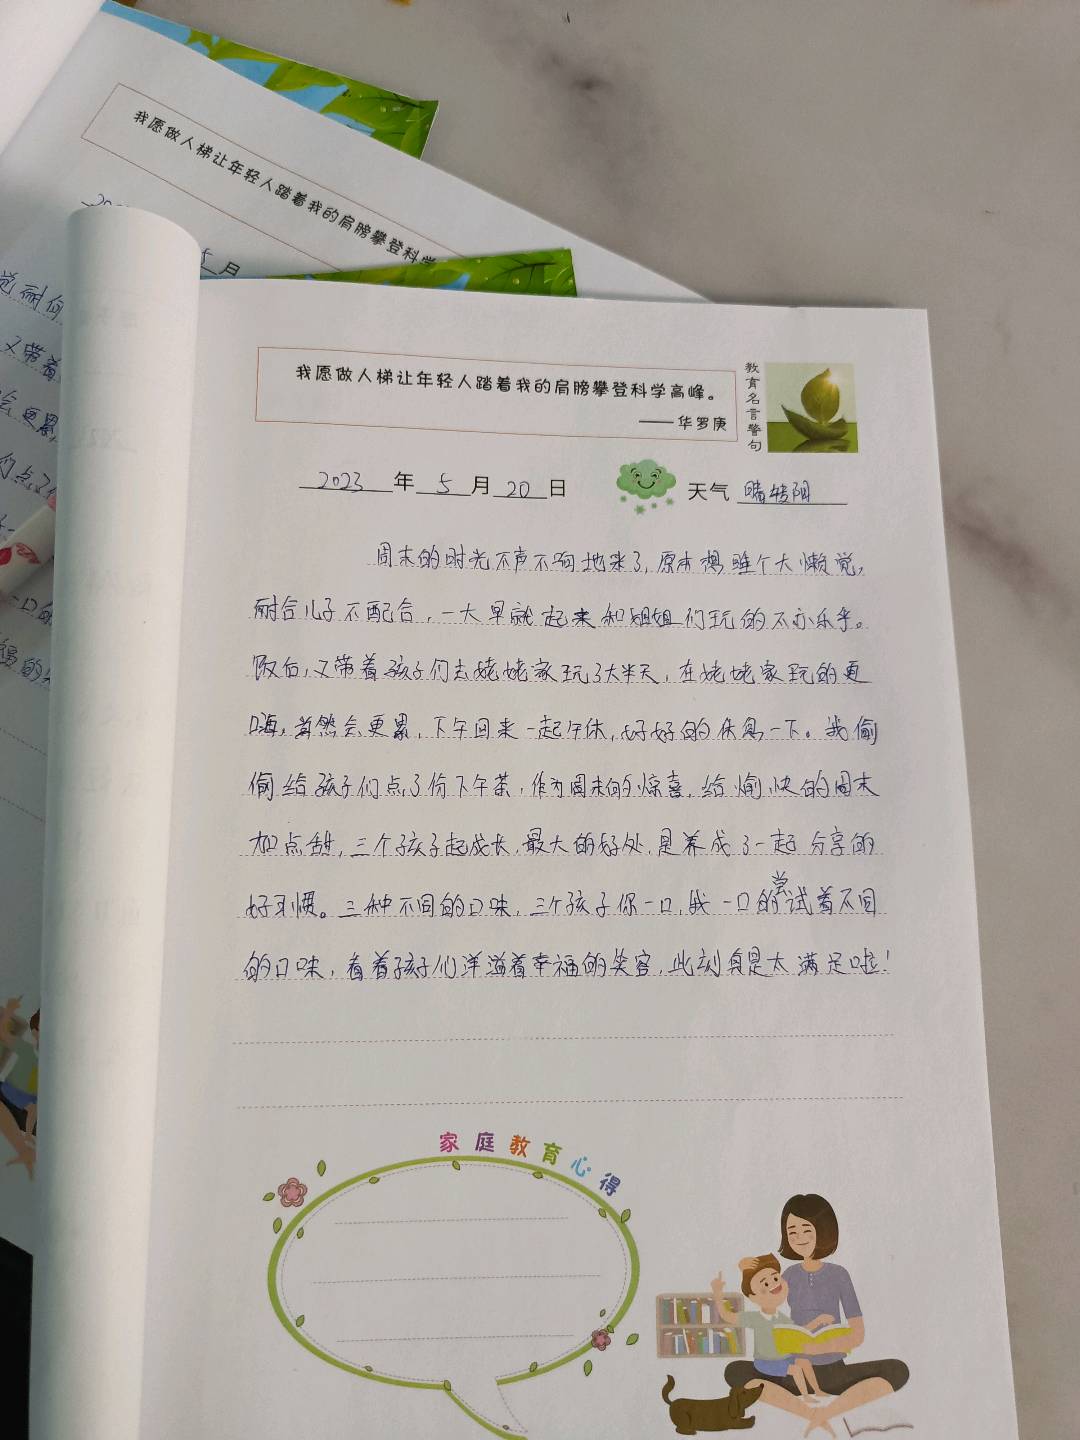 我愿做人梯让年轻人踏着我的肩膀攀登科学
5月
觉耐何
又带着
会更累
们点了
我愿做人梯让年轻人踏着我的肩膀攀登科学高峰。
——华罗庚
教育名言警句
2023年5月20日
天气 晴转阴
周末的时光不声不响地来了,原本想睡个大懒觉,
耐合儿子不配合,一大早就起来和姐姐们玩的不亦乐乎。
饭后,又带着孩子们去姥姥家玩了大半天,在姥姥家玩的更
嗨,当然会更累,下午回来一起午休,好好的休息一下。我偷
偷给孩子们点了份下午茶,作为周末的小惊喜,给愉快的周末
加点甜,三个孩子起成长,最大的好处,是养成了一起分享的
好习惯。三种不同的口味,三个孩子你一口,我一口的尝试着不同
的口味,看着孩子们洋溢着幸福的笑容,此刻真是太满足啦!
家庭教育心得